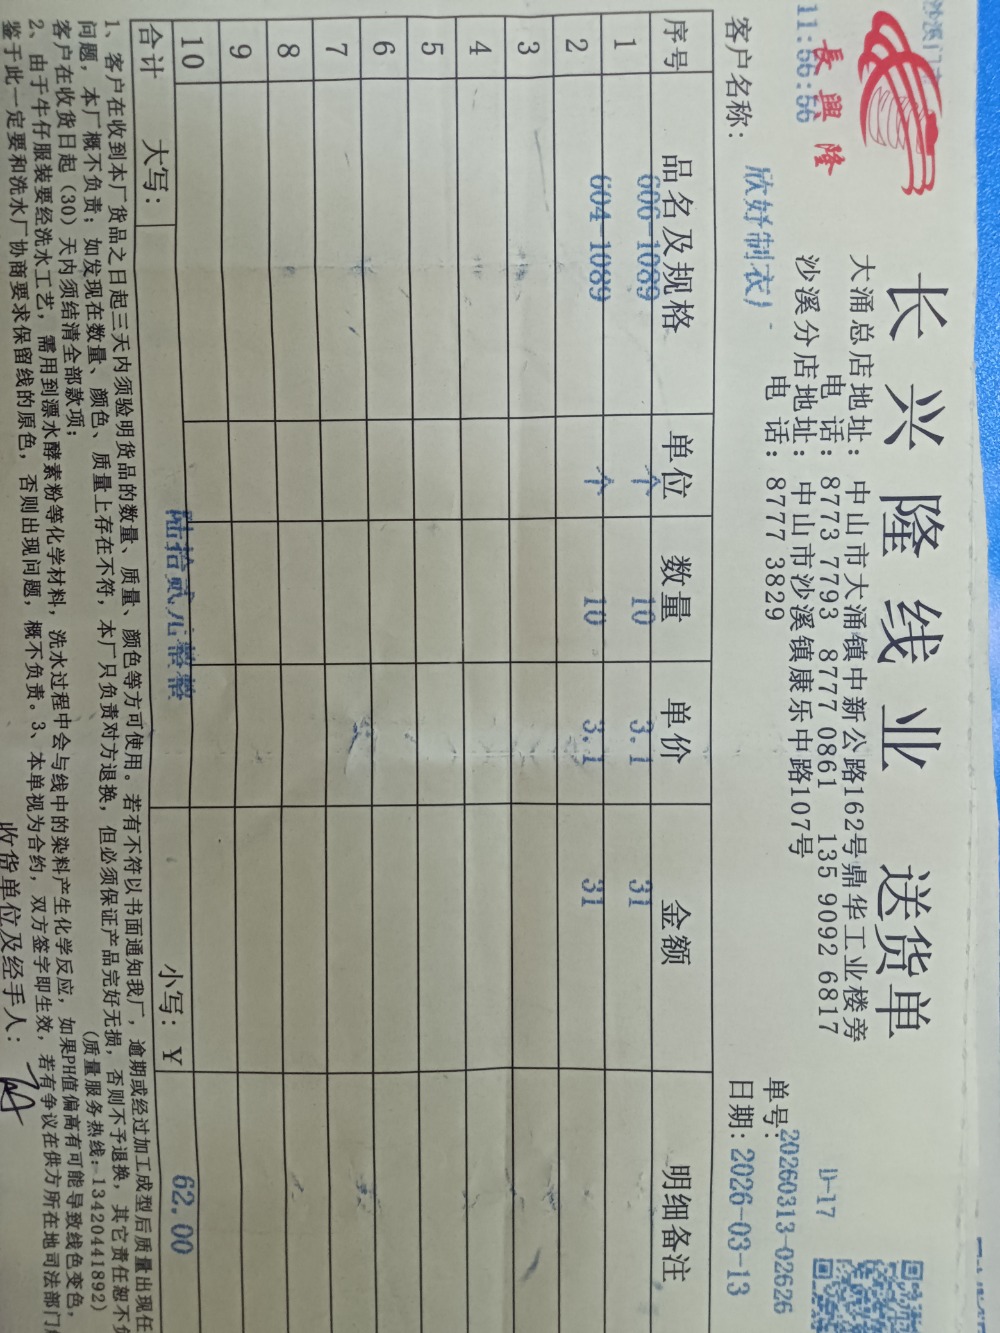 沙溪门
11:56:56
長興隆
长兴隆线业 送货单
大涌总店地址: 中山市大涌镇中新公路162号鼎华工业楼旁
电 话: 8773 7793 8777 0861 135 9092 6817
沙溪分店地址: 中山市沙溪镇康乐中路107号
电 话: 8777 3829
D-17
单号: 20260313-02626
客户名称: 欣妤制衣厂
日期: 2026-03-13
序号 品名及规格 单位 数量 单价 金额 明细备注
1 606-1089 个 10 3.1 31
2 604-1089 个 10 3.1 31
3
4
5
6
7
8
9
10
合计 大写: 陆拾贰元整整 小写: ¥ 62.00
1、客户在收到本厂货品之日起三天内须验明货品的数量、质量、颜色等方可使用。若有不符以书面通知我厂,逾期或经过加工成型后质量出现任
问题,本厂概不负责;如发现在数量、颜色、质量上存在不符,本厂只负责对方退换,但必须保证产品完好无损,否则不予退换,其它责任恕不负
客户在收货日起(30)天内须结清全部款项; (质量服务热线:13420441892)
2、由于牛仔服装要经洗水工艺,需用到漂水酵素粉等化学材料,洗水过程中会与线中的染料产生化学反应,如果PH值偏高有可能导致线色变色,
鉴于此一定要和洗水厂协商要求保留线的原色,否则出现问题,概不负责。3、本单视为合约,双方签字即生效,若有争议在供方所在地司法部门
收货单位及经手人: